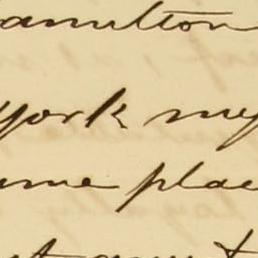 amilton
York my
ame plac